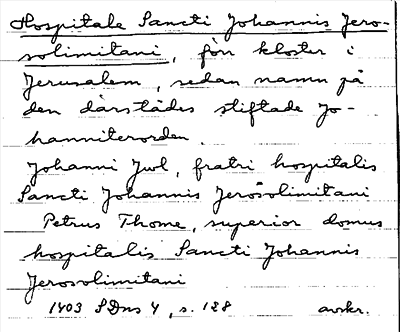 Hospitale Sancti Johannis Jero-
solimitani, förr kloster i
Jerusalem, sedan namn på
den därstädes stiftade Jo-
hanniterorden.
Johanni Juul, fratri hospitalis
Sancti Johannis Jerosolimitani
Petrus Thome, superior domus
hospitalis Sancti Johannis
Jerosolimitani
1403 SDns 4, s. 128 avskr.